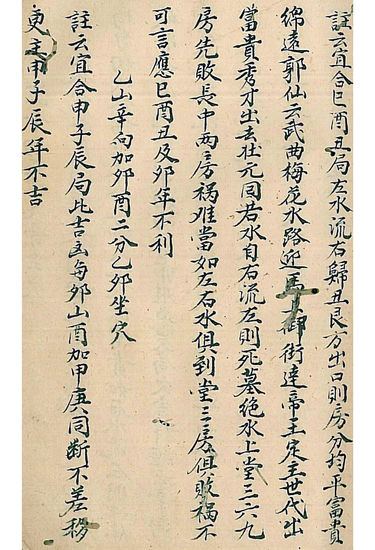 註云宜合巳酉丑局左水流右歸丑艮方出口則房分均平富貴
綿遠郭仙云武曲梅花水路迎馬上御街達帝王定主世代出
富貴秀才出去壯元囘若水自右流左則死墓絶水上堂三六九
房先敗長中两房禍难當如左右水俱到堂三房俱敗禍不
可言應巳酉丑及夘年不利
乙山辛向加夘酉二分乙夘坐穴
註云宜合申子辰局此吉凶与夘山酉加甲庚同断不差移
更主申子辰年不吉